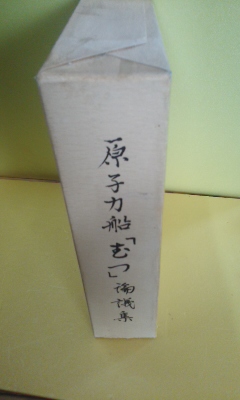 原子力船「むつ」論議集